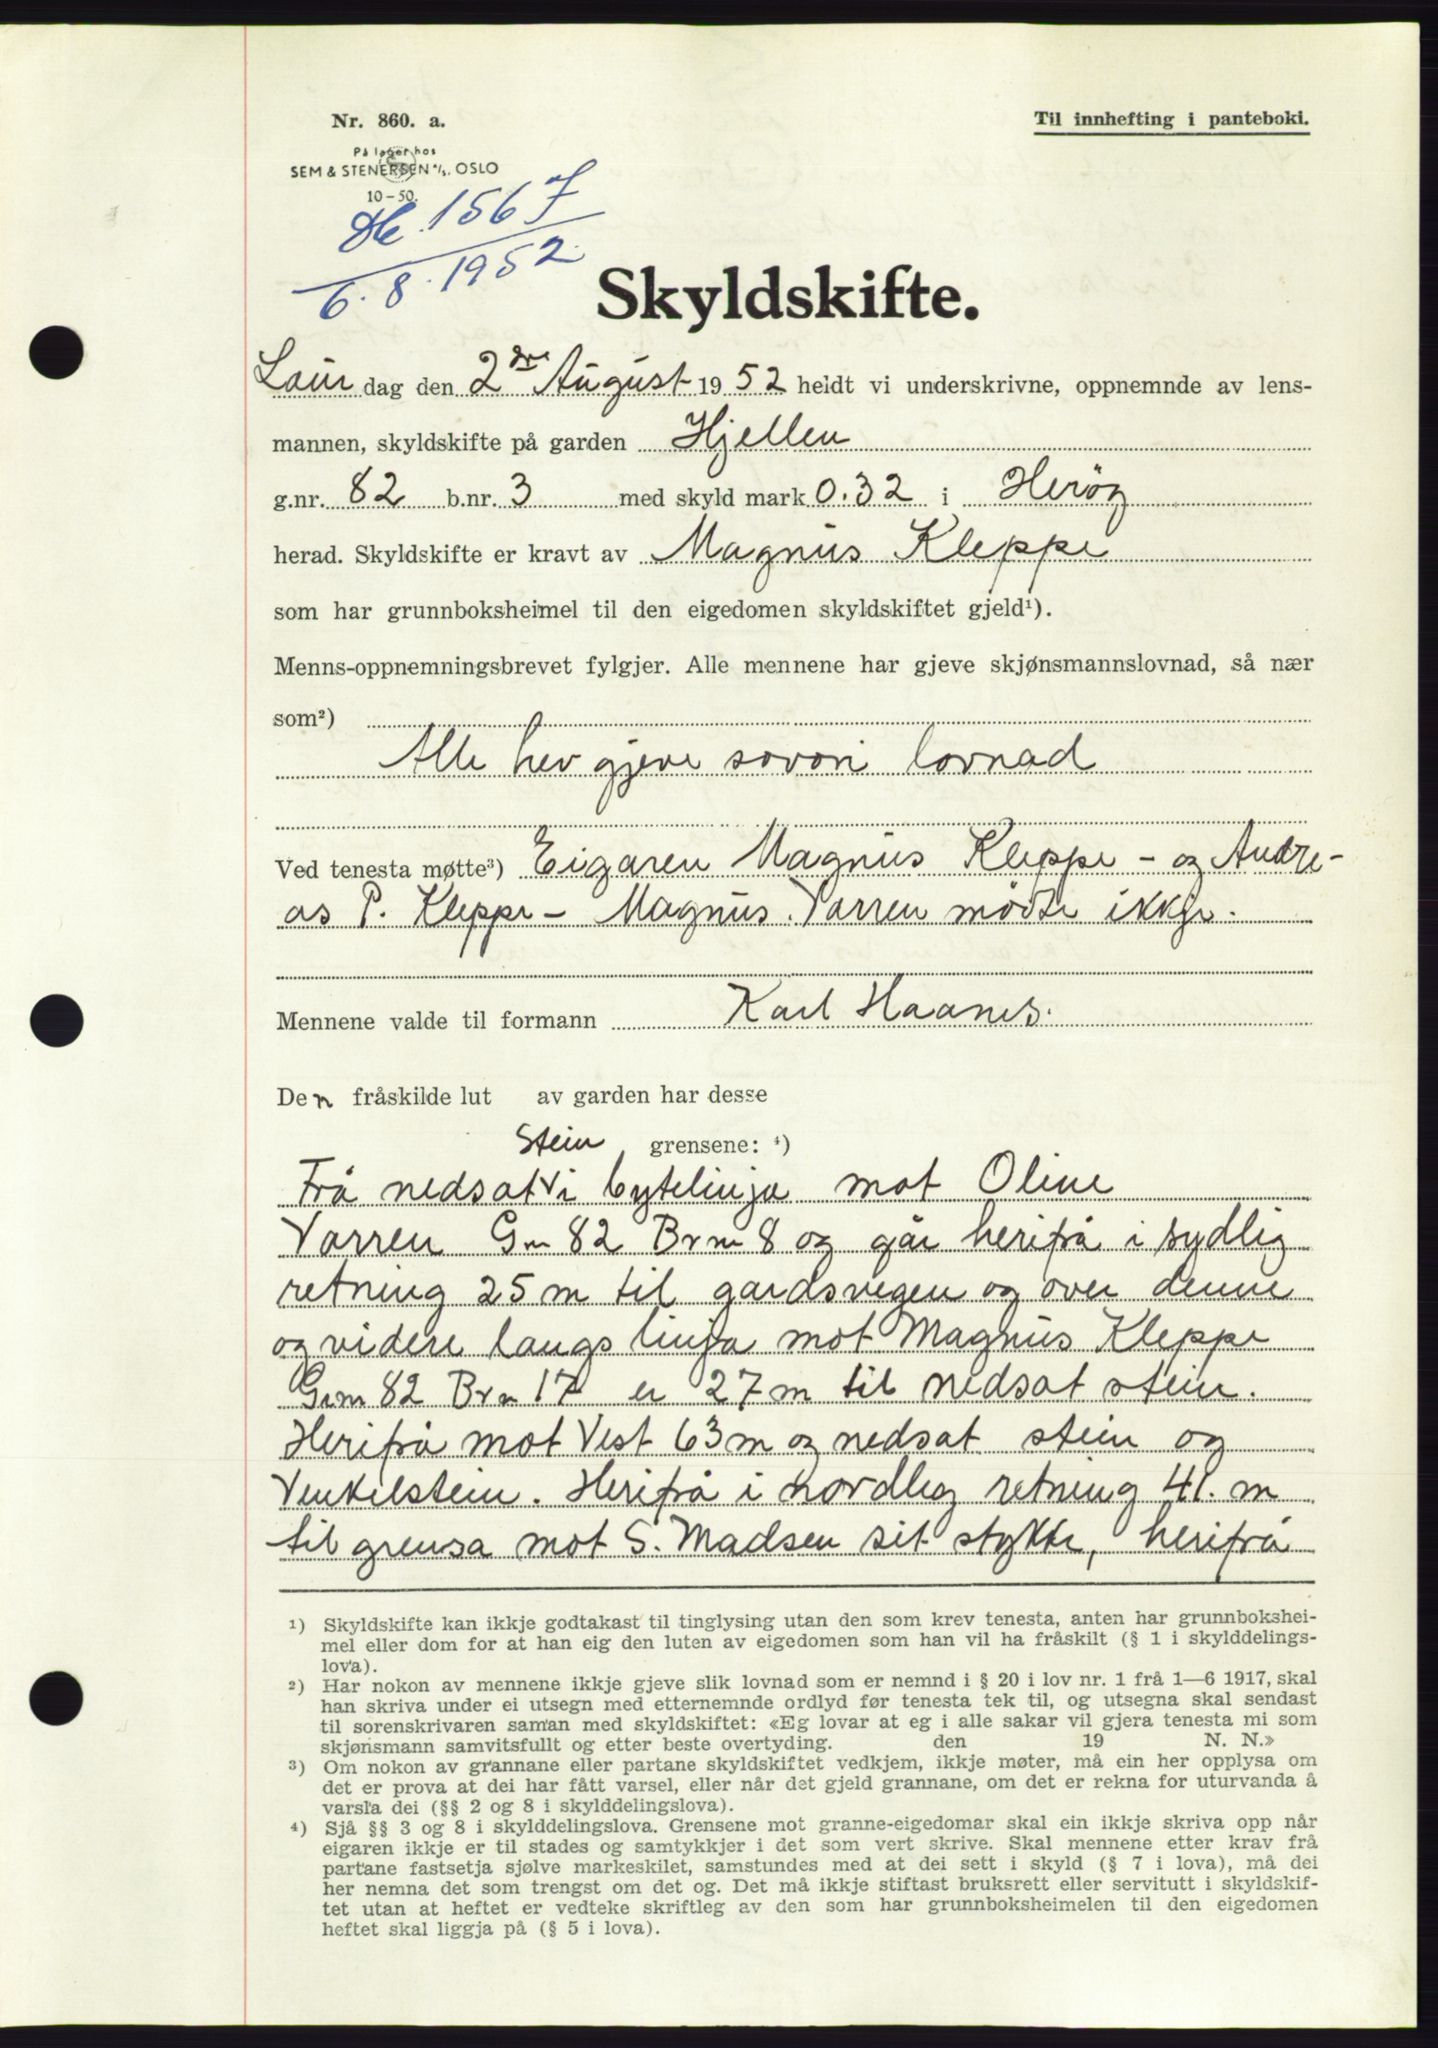 Nr. 860. a.
Til innhefting i panteboki.
På lager hos
SEM & STENERSEN A/S, OSLO
10-50.
Db. 1567
6.8.1952.
Skyldskifte.
Laur dag den 2dre August 1952 heldt vi underskrivne, oppnemnde av lens-
mannen, skyldskifte på garden Hjellen
g.nr. 82 b.nr. 3 med skyld mark 0.32 i Herøy
herad. Skyldskifte er kravt av Magnus Kleppe
som har grunnboksheimel til den eigedomen skyldskiftet gjeld¹).
Menns-oppnemningsbrevet fylgjer. Alle mennene har gjeve skjønsmannslovnad, så nær
som²)
Alle hev gjeve sovori lovnad
Ved tenesta møtte³) Eigaren Magnus Kleppe - og Andre-
as P. Kleppe - Magnus. Varren mödte ikkje.
Mennene valde til formann Karl Haanes.
Den fråskilde lut av garden har desse
grensene: ⁴)
Stein
Frå nedsat v i bytelinja mot Oline
Varren Gn 82 Brn 8 og går herifrå i sydlig
retning 25 m til gardsvegen og over denne
og videre langs linja mot Magnus Kleppe
Grn 82 Brn 17 er 27 m til nedsat stein.
Herifrå mot Vest 63 m og nedsat stein og
Venkelstein. Herifrå i nordleg retning 41. m
til grensa mot S. Madsen sit stykke, herifrå
¹) Skyldskifte kan ikkje godtakast til tinglysing utan den som krev tenesta, anten har grunnbokshei-
mel eller dom for at han eig den luten av eigedomen som han vil ha fråskilt (§ 1 i skylddelings-
lova).
²) Har nokon av mennene ikkje gjeve slik lovnad som er nemnd i § 20 i lov nr. 1 frå 1—6 1917, skal
han skriva under ei utsegn med etternemnde ordlyd før tenesta tek til, og utsegna skal sendast
til sorenskrivaren saman med skyldskiftet: «Eg lovar at eg i alle sakar vil gjera tenesta mi som
skjønsmann samvitsfullt og etter beste overtyding. den 19 N. N.»
³) Om nokon av grannane eller partane skyldskiftet vedkjem, ikkje møter, må ein her opplysa om
det er prova at dei har fått varsel, eller når det gjeld grannane, om det er rekna for uturvanda å
varsla dei (§§ 2 og 8 i skylddelingslova).
⁴) Sjå §§ 3 og 8 i skylddelingslova. Grensene mot granne-eigedomar skal ein ikkje skriva opp når
eigaren ikkje er til stades og samtykkjer i det som vert skrive. Skal mennene etter krav frå
partane fastsetja sjølve markeskilet, samstundes med at dei sett i skyld (§ 7 i lova), må dei
her nemna det som trengst om det og. Det må ikkje stiftast bruksrett eller servitutt i skyldskif-
tet utan at heftet er vedteke skriftleg av den som har grunnboksheimelen til den eigedomen
heftet skal liggja på (§ 5 i lova).